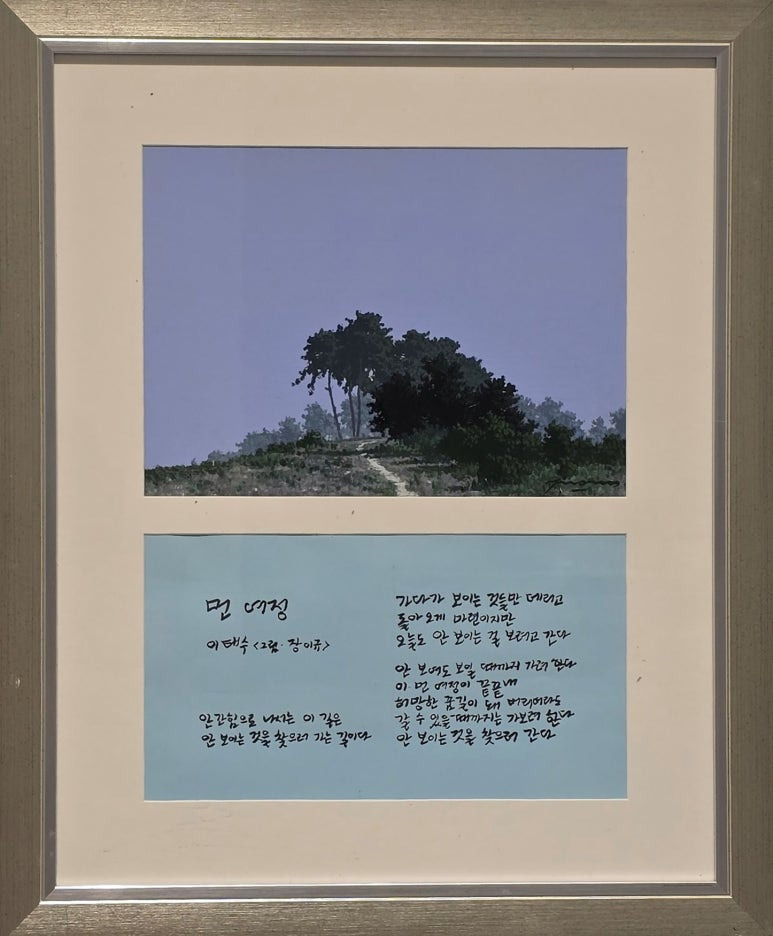 먼 여정
이태수 <그림·장이규>
안간힘으로 나서는 이 길은
안 보이는 것을 찾으러 가는 길이다
가다가 보이는 것들만 데리고
돌아오게 마련이지만
오늘도 안 보이는 걸 보려고 간다
안 보여도 보일 때까지 가려 한다
이 먼 여정이 끝끝내
허망한 꿈길이 돼 버리더라도
갈 수 있을 때까지는 가보려 한다
안 보이는 것을 찾으러 간다